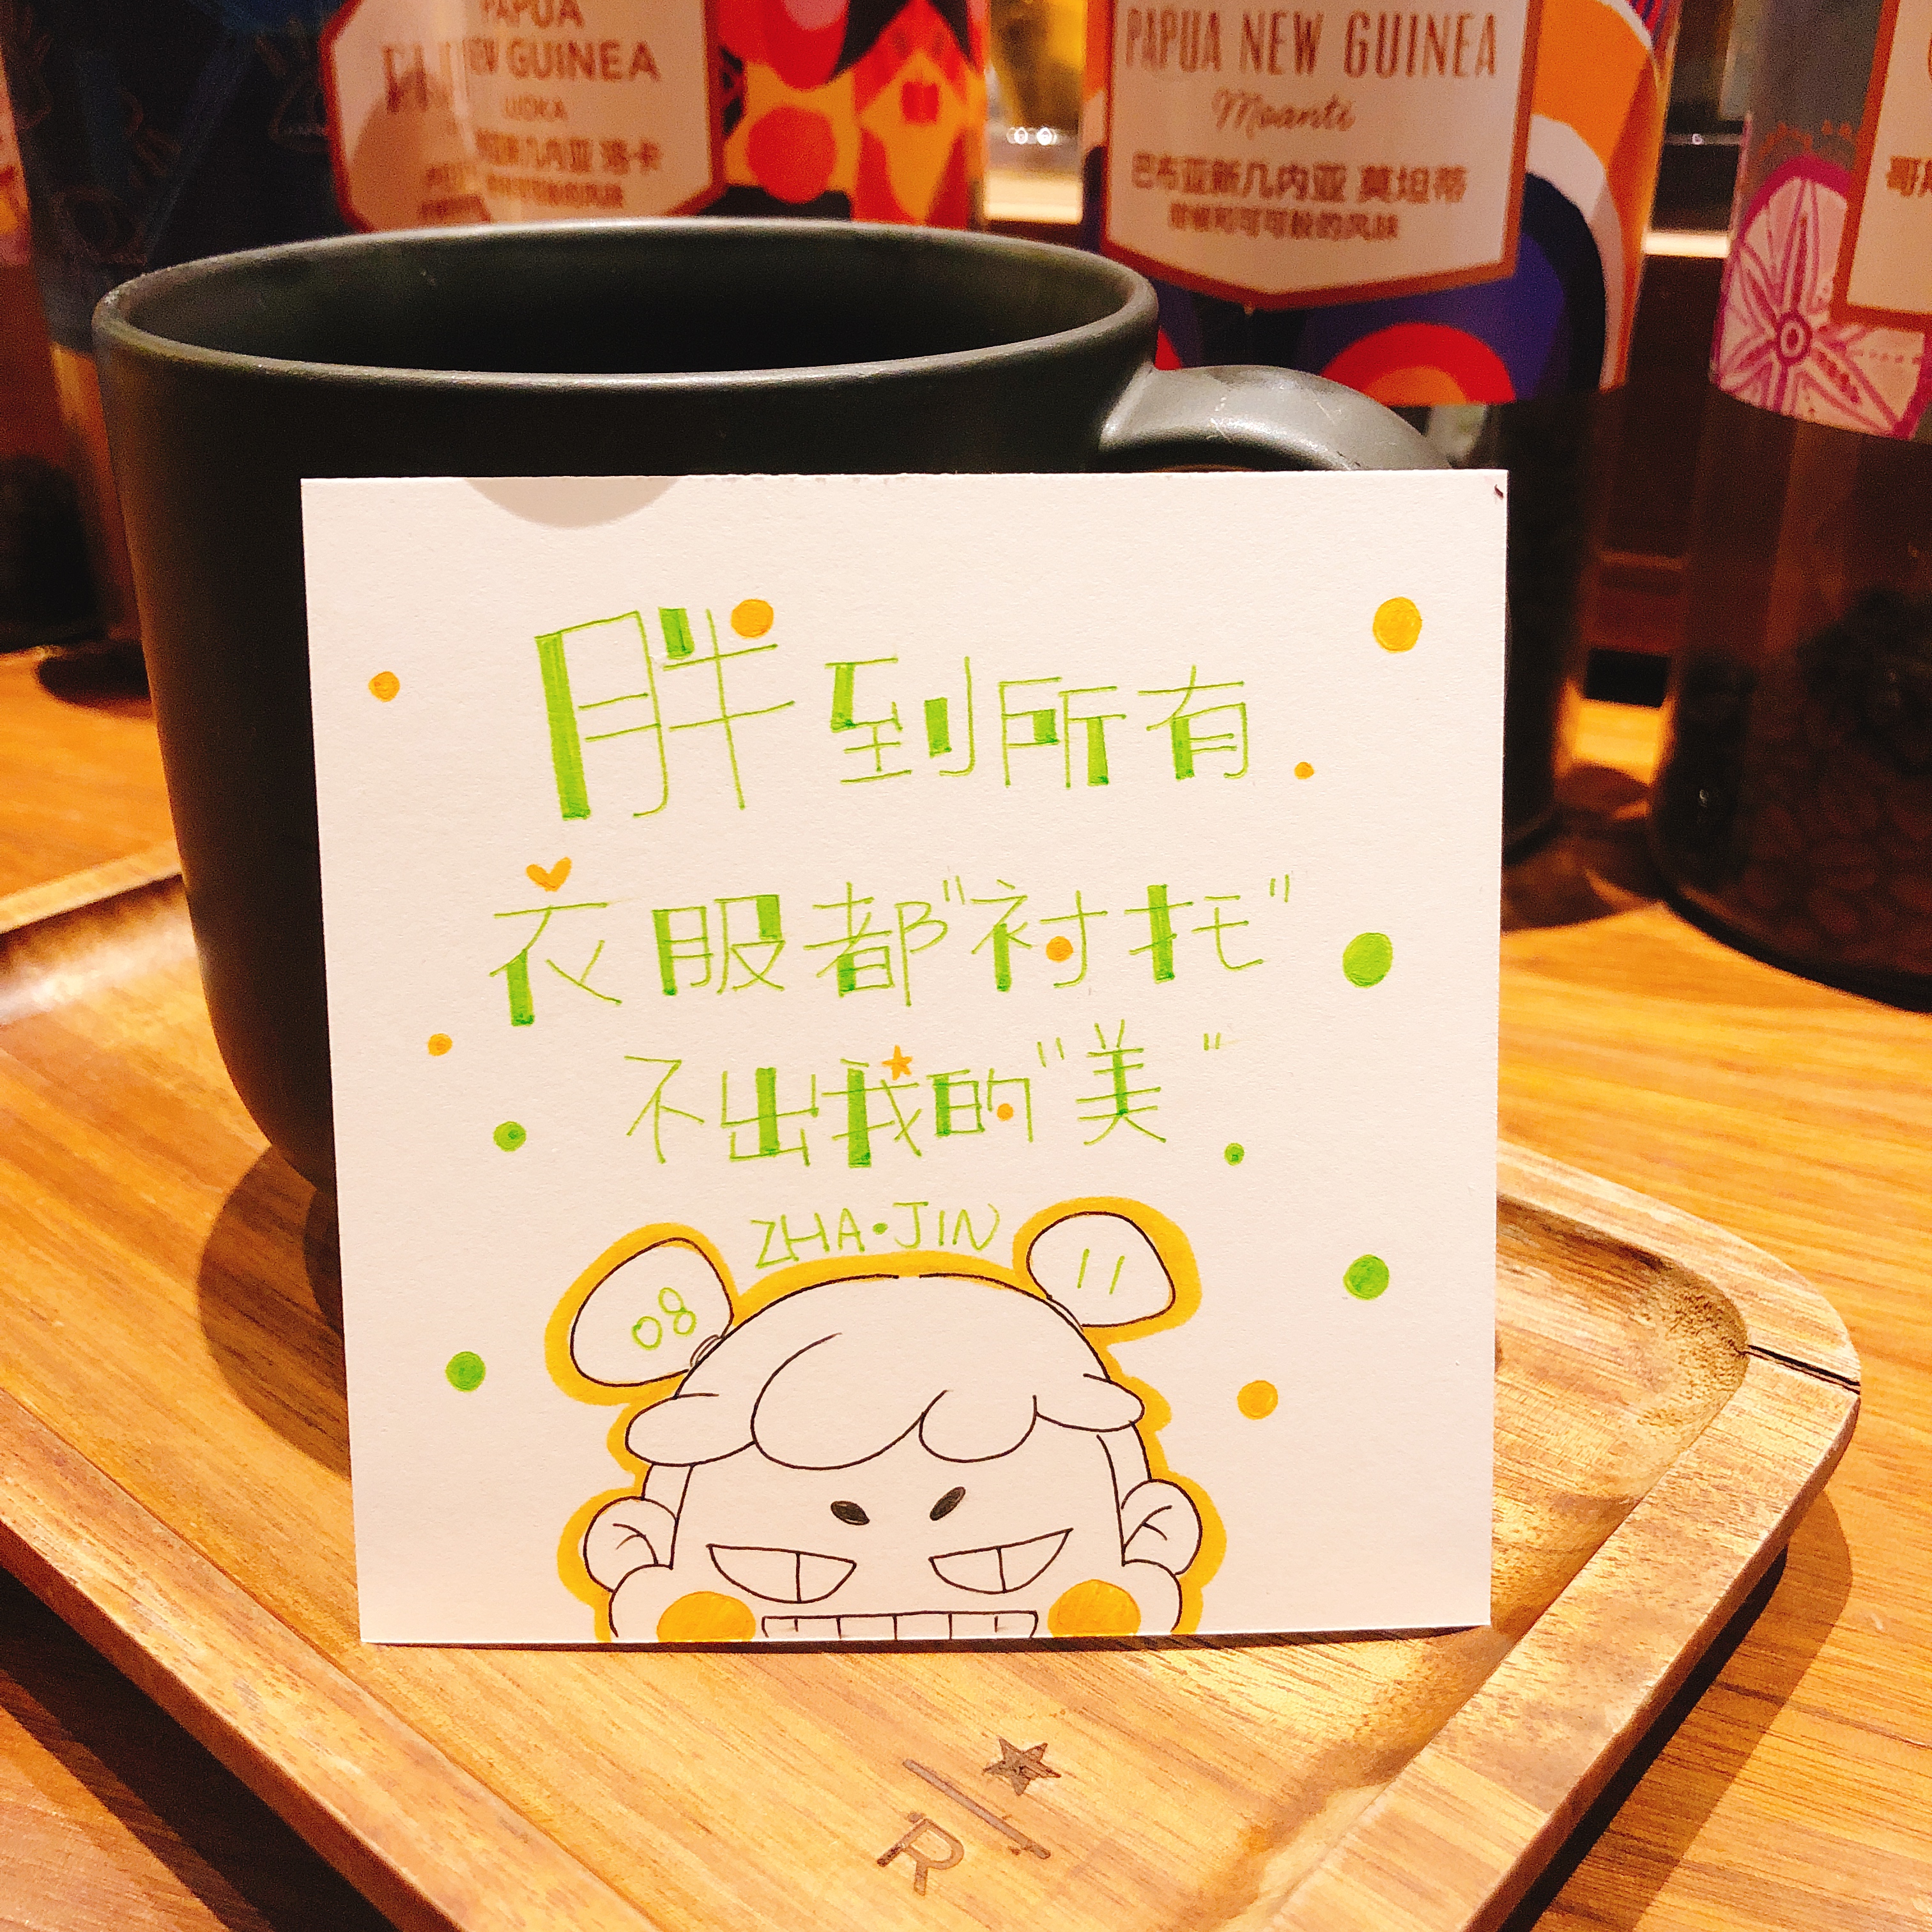 PAPUA
NEW GUINEA
洛卡
PAPUA NEW GUINEA
Moanti
巴布亚新几内亚 莫坦蒂
胖到所有
衣服都"衬托"
不出我的"美"
ZHA·JIN
08
11
R